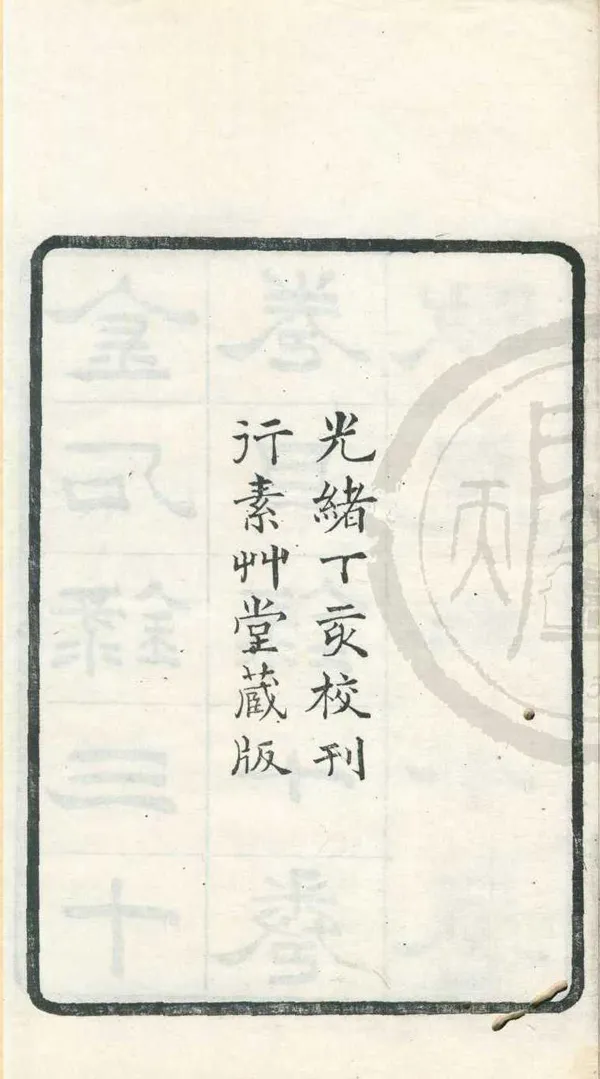 光緒丁亥校刊
行素艸堂蔵版